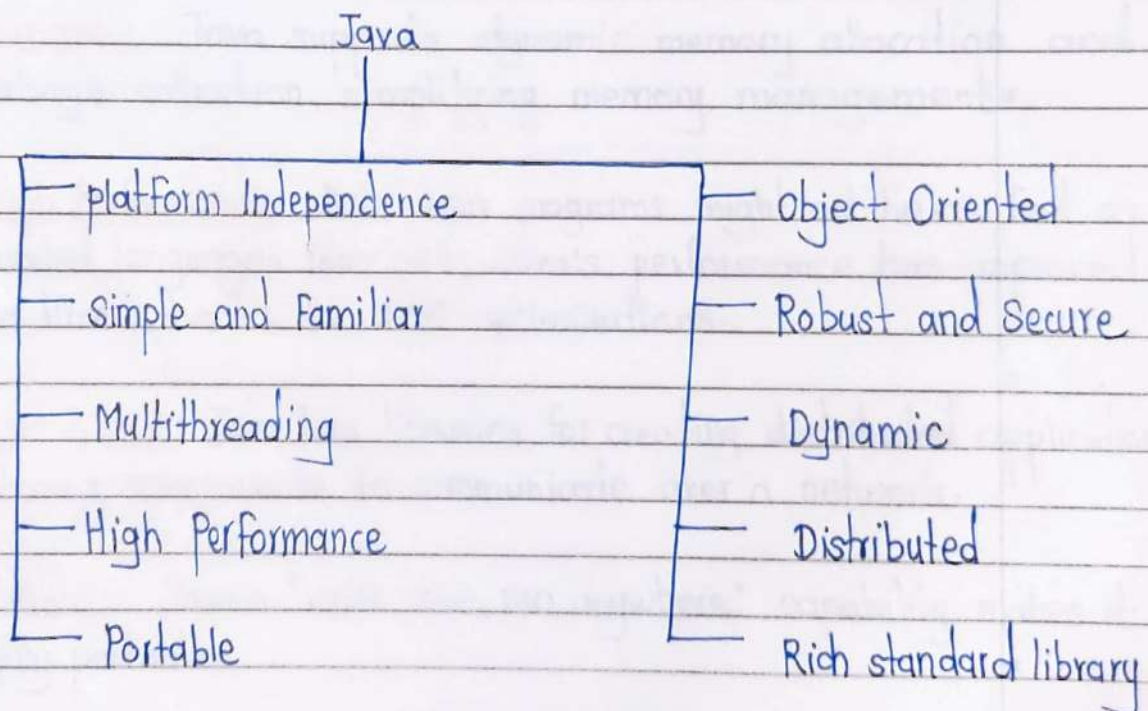 Java
platform Independence
Simple and Familiar
Multithreading
High Performance
Portable
Object Oriented
Robust and Secure
Dynamic
Distributed
Rich standard library